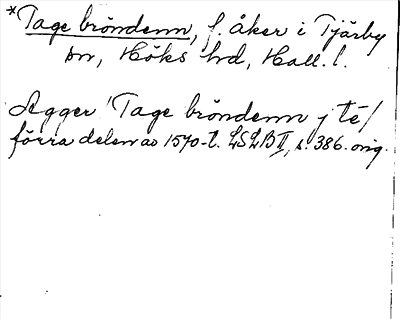 *Tage bröndenn, f. åker i Tjärby
sn, Höks hd, Hall. l.
Agger Tage bröndenn j té/
förra delen av 1570-t. LSLB II, s. 386. orig.